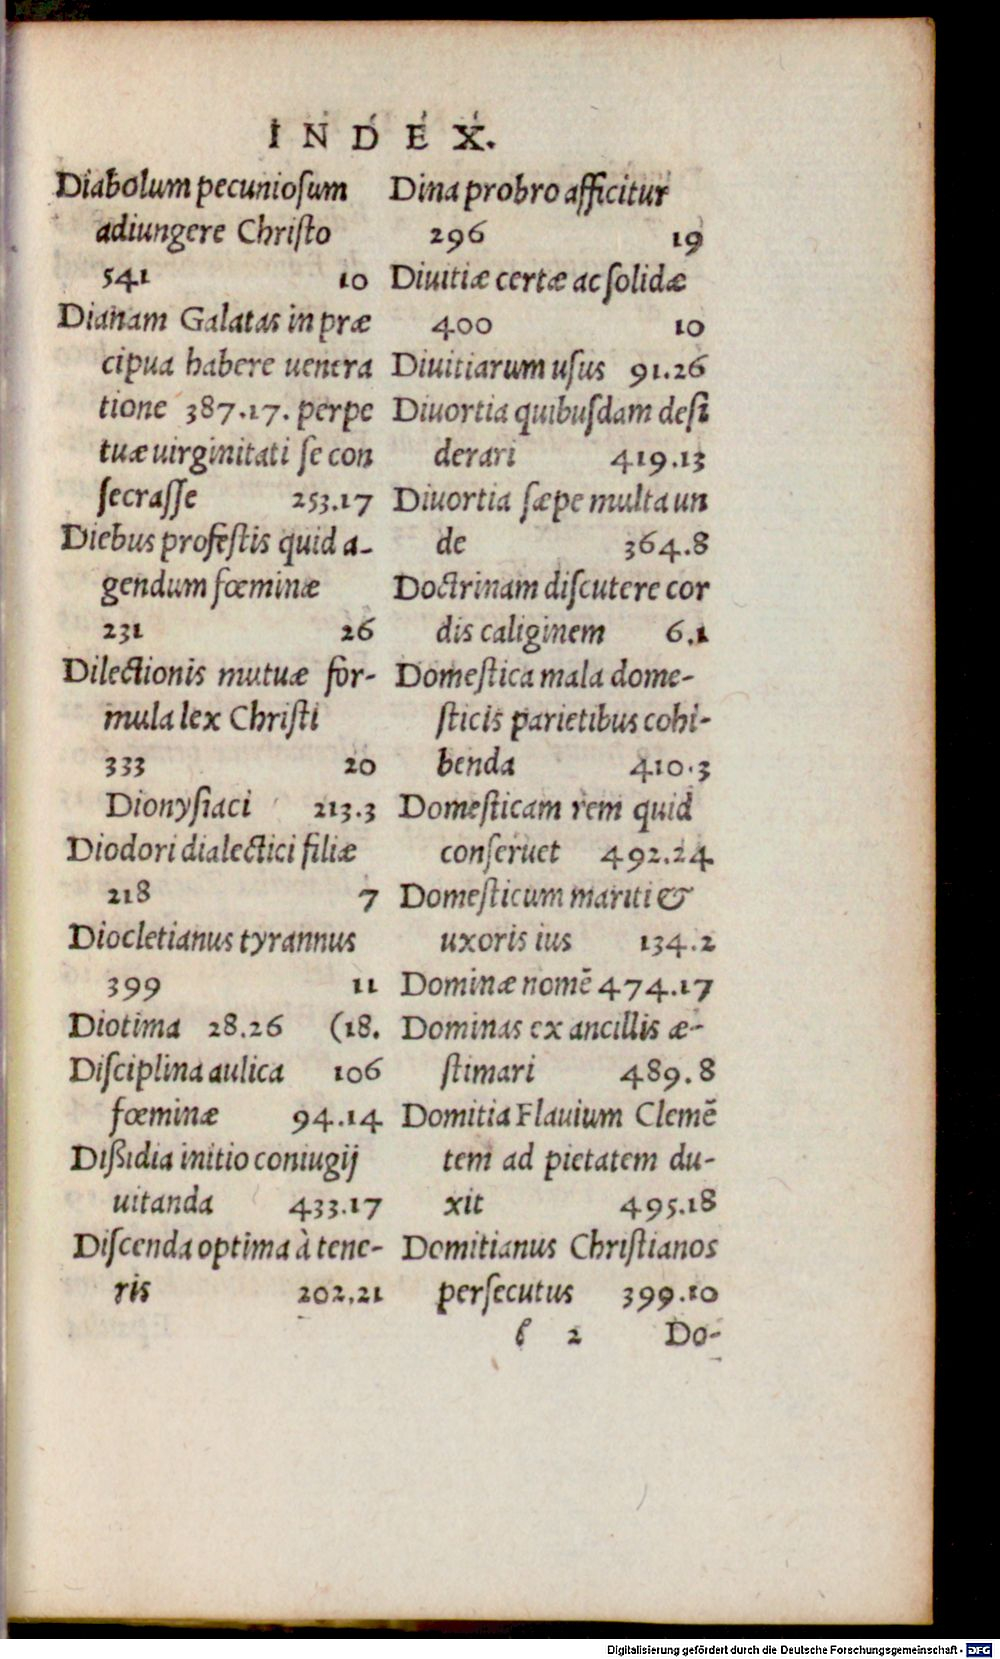 INDEX.
Diabolum pecuniosum
adiungere Christo
541 10
Dianam Galatas in præ
cipua habere uenera
tione 387.17. perpe
tuæ uirginitati se con
secrasse 253.17
Diebus profestis quid a-
gendum fœminæ
231 26
Dilectionis mutuæ for-
mula lex Christi
333 20
Dionysiaci 213.3
Diodori dialectici filiæ
218 7
Diocletianus tyrannus
399 11
Diotima 28.26 (18.
Disciplina aulica 106
fœminæ 94.14
Dißidia initio coniugij
uitanda 433.17
Discenda optima à tene-
ris 202.21
Dina probro afficitur
296 19
Diuitiæ certæ ac solidæ
400 10
Diuitiarum usus 91.26
Diuortia quibusdam desi
derari 419.13
Diuortia sæpe multa un
de 364.8
Doctrinam discutere cor
dis caliginem 6.1
Domestica mala dome-
sticis parietibus cohi-
benda 410.3
Domesticam rem quid
conseruet 492.24
Domesticum mariti &
uxoris ius 134.2
Dominæ nomē 474.17
Dominas ex ancillis æ-
stimari 489.8
Domitia Flauium Clemē
tem ad pietatem du-
xit 495.18
Domitianus Christianos
persecutus 399.10
b 2 Do-
Digitalisierung gefördert durch die Deutsche Forschungsgemeinschaft - DFG